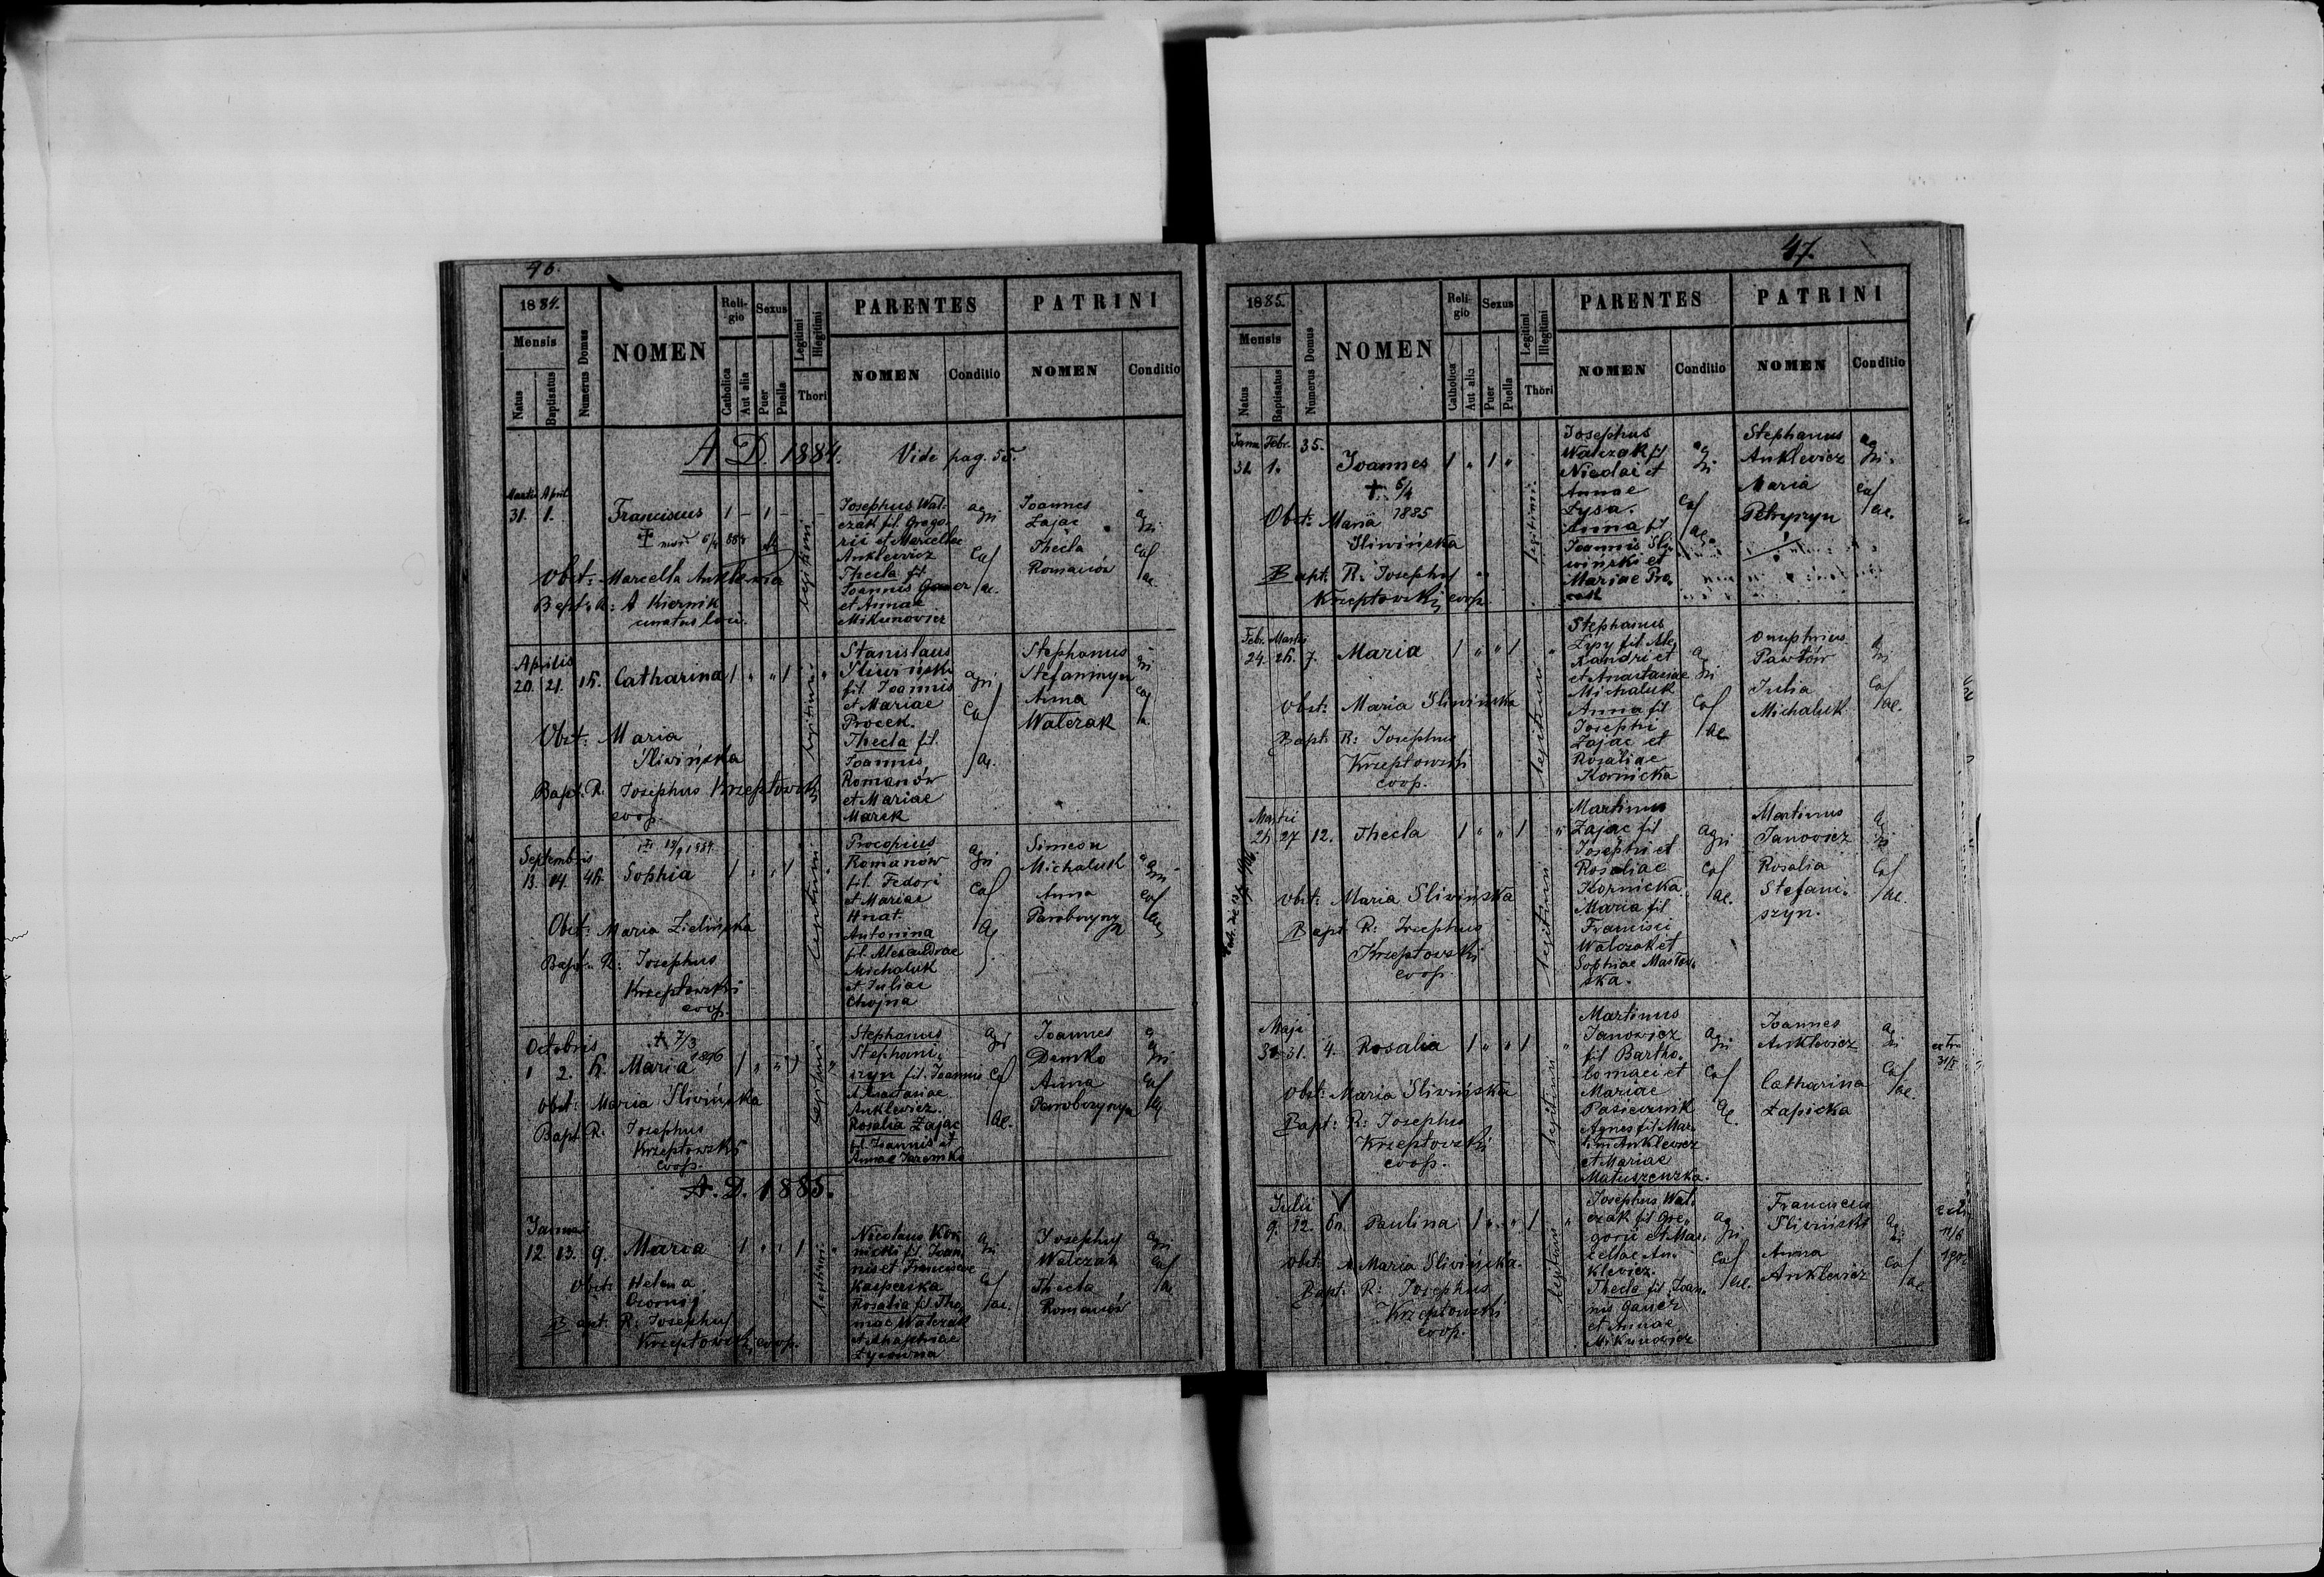 46.
1884.
Mensis
Natus
Baptisatus
Numerus Domus
NOMEN
Religio
Catholica
Aut alia
Sexus
Puer
Puella
Legitimi
Illegitimi
Thori
PARENTES
NOMEN
Conditio
PATRINI
NOMEN
Conditio
A. D. 1884. Vide pag. 55.
Martii April.
31. 1.
Franciscus 1 - 1 -
Obst: Marcella Anklewicz
Bapt. R: A Kiernik
legitimi
Josephus Wal-
czak fil. Grego-
rii et Marcellae
Anklewicz
Thecla fil.
Joannis Ganer
et Annae
Mikunowicz
agri
Joannes
Zając
Thecla
Romanów
Aprilis
20. 21. 15. Catharina 1 " " 1 "
Obst: Maria
Śliwińska
Bapt. R. Josephus Krzeptowski
coop.
legitimi
Stanislaus
Śliwiński
fil. Joannis
et Mariae
Procek.
Thecla fil.
Joannis
Romanów
et Mariae
Marek
Stephanus
Stefaniszyn
Anna
Walczak
Septembris
13. 14. 45. Sophia 1 " " 1
Obst: Maria Zielińska
Bapt. R: Josephus
Krzeptowski
coop.
Procopius
Romanów
fil. Fedori
et Mariae
Hnat.
Antonina
fil. Alexandrae
Michaluk
et Juliae
Chojna
Simeon
Michaluk
Anna
Octobris
1 2. 5. Maria 1 " " 1 "
† 7/3
1896
Obst: Maria Śliwińska
Bapt. R: Josephus
Krzeptowski
coop.
Stephanus
Stephani-
szyn fil. Joannis
Anklewicz.
Rosalia Zając
fil. Joannis et
Annae Jaremko
Joannes
Demko
Anna
A. D. 1885.
Januar
12 13. 9. Maria 1 " " 1 "
Obst: Helena
Bapt. R: Josephus
Krzeptowski, coop.
legitimi
Nicolaus Kor-
nicki fil. Joan-
nis et Franciscae
Kasperska
Rosalia fil. Tho-
mae Walczak
Josephus
Walczak
Thecla
Romanów
47.
1885.
Mensis
Natus
Baptisatus
Numerus Domus
NOMEN
Religio
Catholica
Aut alia
Sexus
Puer
Puella
Legitimi
Illegitimi
Thori
PARENTES
NOMEN
Conditio
PATRINI
NOMEN
Conditio
Janu Febr.
31. 1. 35. Joannes 1 " 1 "
† 6/4
1885
Obst: Maria
Śliwińska
Bapt. R: Josephus
Krzeptowski coop.
legitimi
Josephus
Walczak fil
Nicolai et
Annae
Łysa.
Anna fil
Joannis Śli-
wiński et
Mariae Pro-
cek
Stephanus
Anklewicz
Maria
Petryszyn
Febr. Martii
24. 25. 7. Maria 1 " " 1 "
Obst: Maria Śliwińska
Bapt. R: Josephus
Krzeptowski
coop.
legitimi
Stephanus
Łysy fil. Ale-
xandri et
et Anastasiae
Michaluk
Anna fil
Josephi
Zając et
Rosaliae
Kornicka
Onuphrius
Pawłów
Julia
Michaluk
Martii
25. 27 12. Thecla 1 " " 1 "
Obst: Maria Śliwińska
Bapt. R: Josephus
Krzeptowski
coop.
legitimi
Martinus
Zając fil
Josephi et
Rosaliae
Kornicka
Maria fil
Francisci
Walczak et
Sophiae
Martinus
Janowicz
Rosalia
Stefani-
szyn.
Maji
31. 4. Rosalia 1 " " 1 "
Obst: Maria Śliwińska
Bapt: R: Josephus
Krzeptowski
coop.
legitimi
Martinus
Janowicz
fil Bartho-
lomaei et
Mariae
Pasiecznik
Agnes fil Mar-
tini Anklewicz
et Mariae
Matuszewska.
Joannes
Anklewicz
Catharina
Łapicka
Julii
9. 12. Paulina 1 " " 1 "
Obst: Maria Śliwińska.
Bapt: R: Josephus
Krzeptowski
coop.
legitimi
Josephus Wal-
czak fil Gre-
gorii et Mar-
cellae An-
klewicz.
Thecla fil Joan-
nis Ganer
et Annae
Mikunowicz
Franciscus
Śliwiński
Anna
Anklewicz